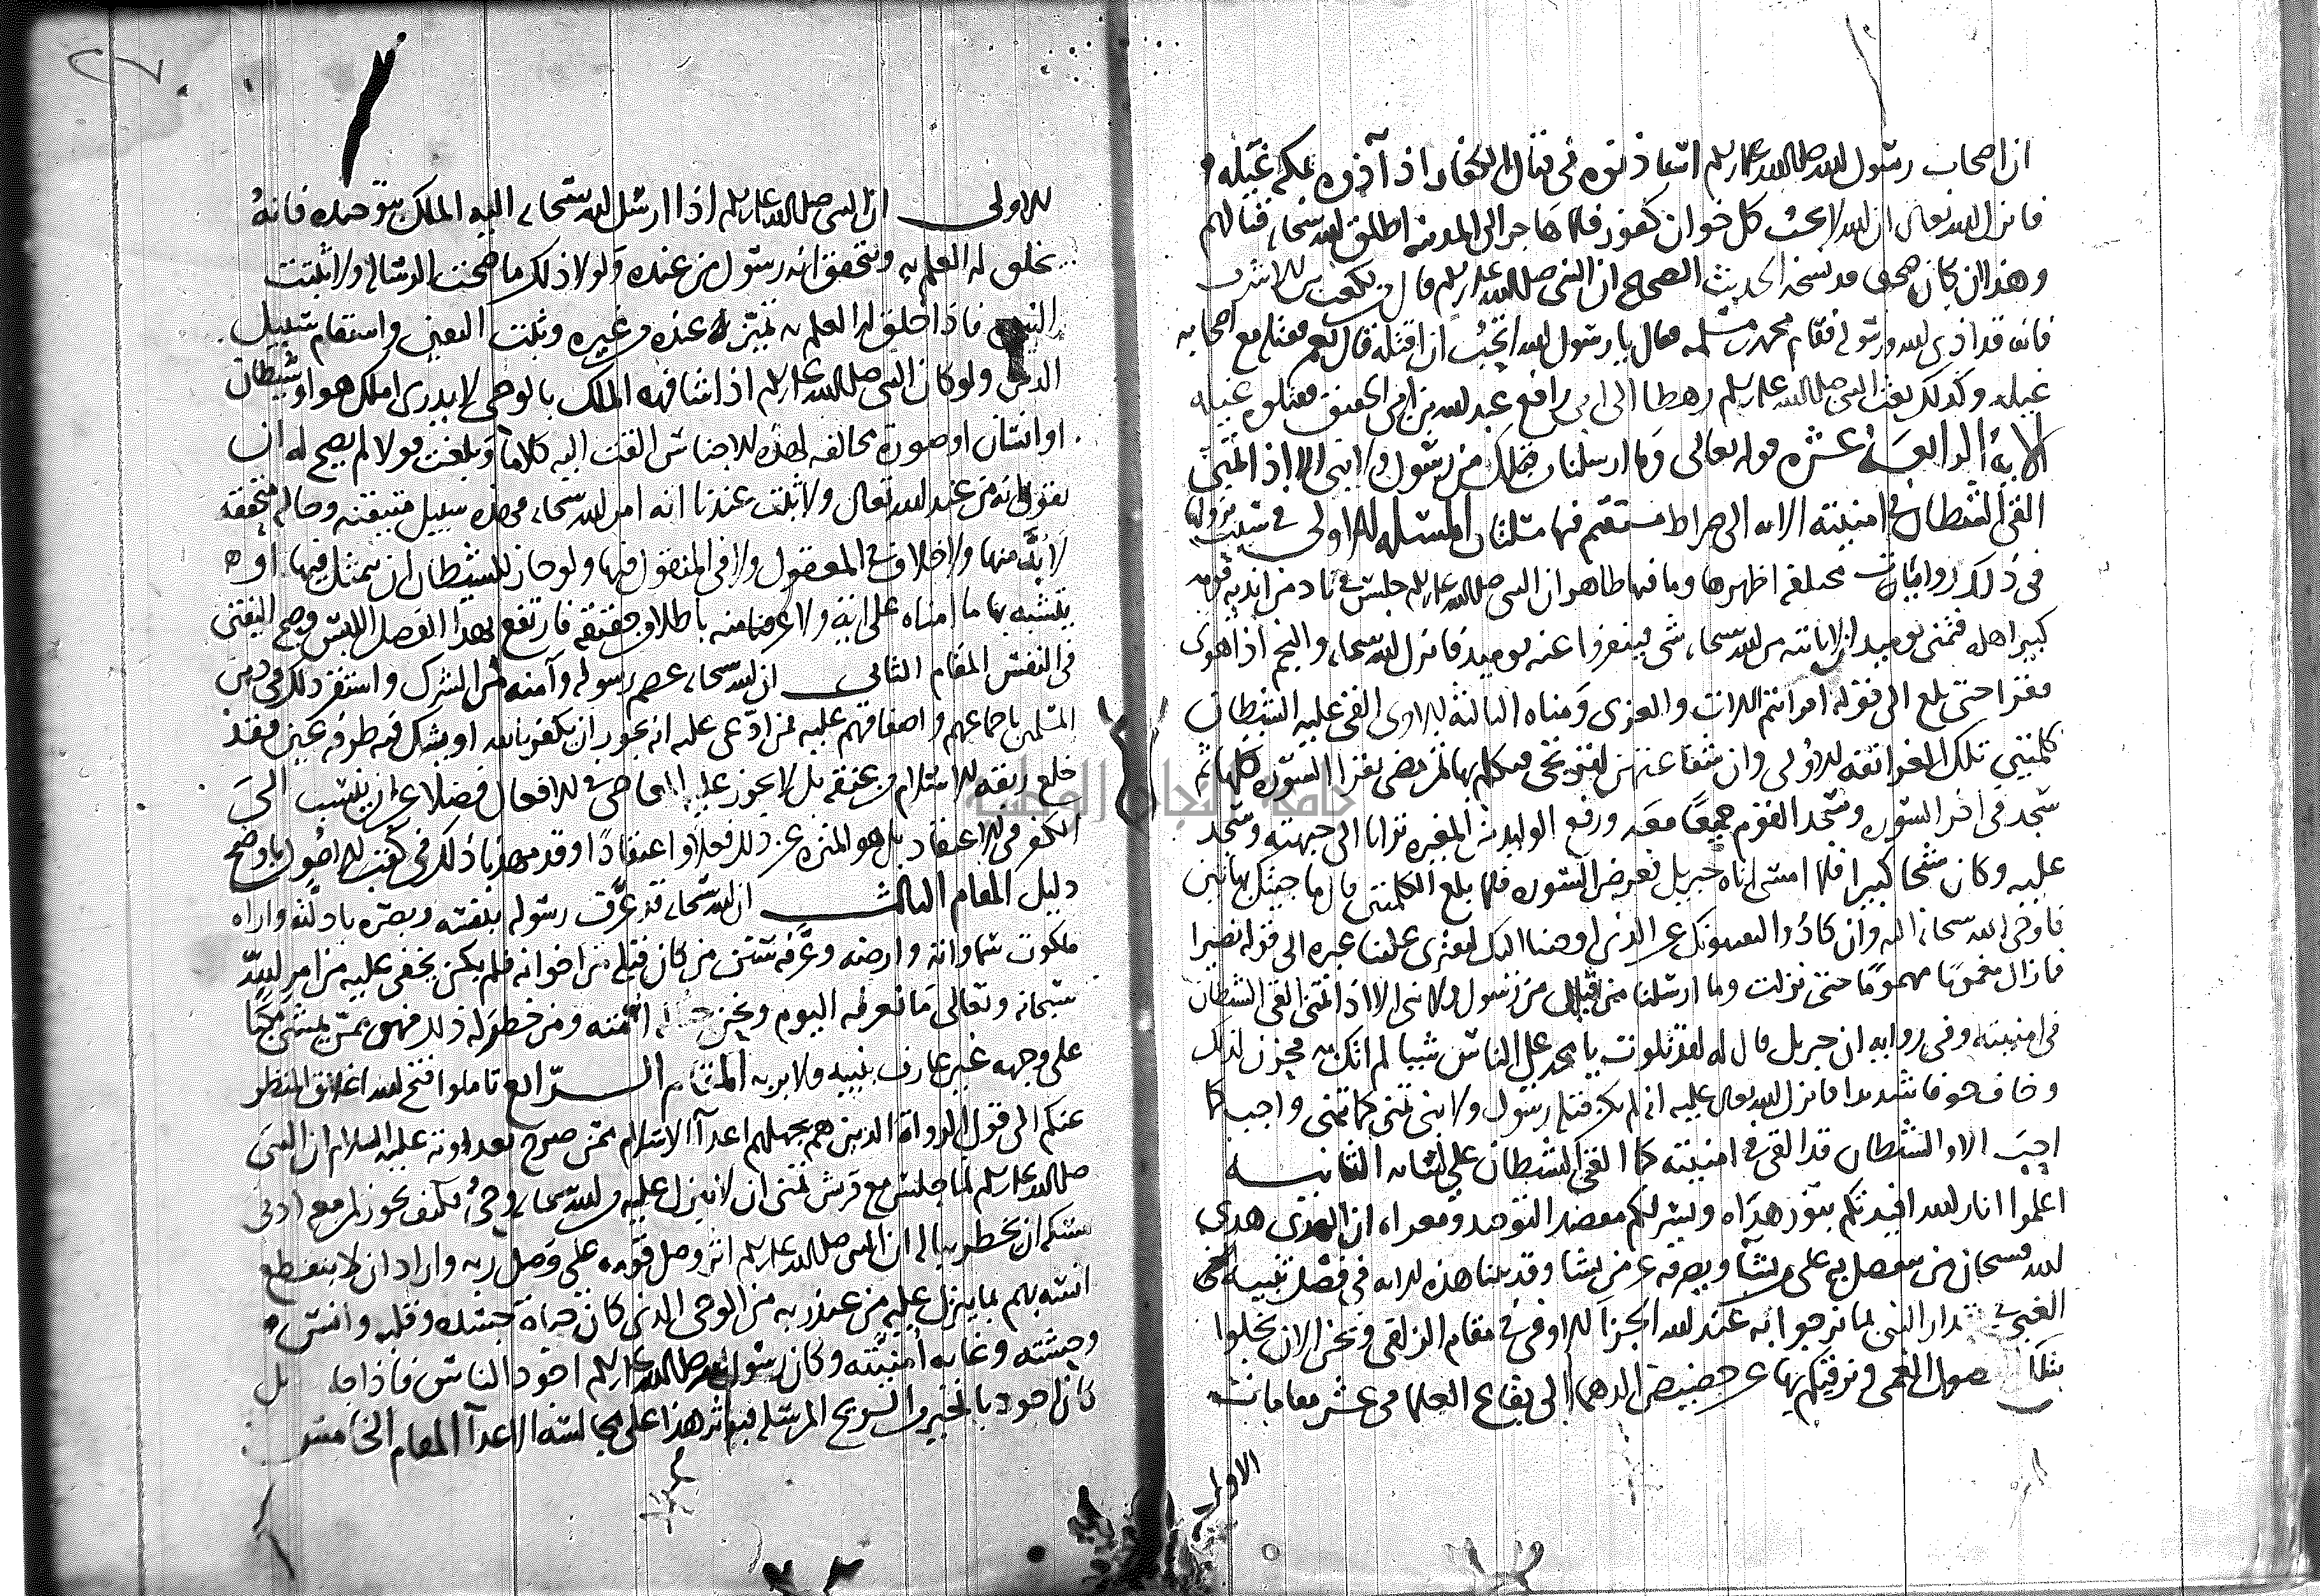 ان اصحاب رسول الله صلى الله عليه وسلم استاذنوه في قتال الكفار اذ آذوه بمكه غيله
فانزل الله تعالى ان الله لا يحب كل خوان كفور فلما هاجر الى المدينه اطلق الله سبحانه قتالهم
وهذا ان كان صحيحا فقد نسخه الحديث الصحيح ان النبي صلى الله عليه وسلم قال من لكعب بن الاشرف
فانه قد اذى الله ورسوله فقام محمد بن مسلمه فقال يا رسول الله اتحب ان اقتله قال نعم فقتله مع اصحابه
غيله وكذلك بعث النبي صلى الله عليه وسلم رهطا الى ابي رافع عبد الله بن ابي الحقيق فقتلوه غيله
الايه الرابعه عشره قوله تعالى وما ارسلنا من قبلك من رسول ولا نبي الا اذا تمنى
القى الشيطان في امنيته الايه الى صراط مستقيم فيها مسلتان المسله الاولى في سبب نزولها
في ذلك روايات مختلفه اظهرها وما فيها ظاهر ان النبي صلى الله عليه وسلم جلس في ناد من انديه قومه
كبير اهله فتمنى يوميذ الا ياتيه من الله سبحانه شي فينفروا عنه يوميذ فانزل الله سبحانه والنجم اذا هوى
فقرا حتى بلغ الى قوله افرايتم اللات والعزى ومناه الثالثه الاخرى القى عليه الشيطان
كلمتين تلك الغرانقه الاولى وان شفاعتهن لترتجى فتكلم بها ثم مضى بقرا السوره كلها ثم
سجد في اخر السوره وسجد القوم جميعا معه ورفع الوليد بن المغيره ترابا الى جبهته وسجد
عليه وكان شيخا كبيرا فلما امسى اتاه جبريل فعرض السوره فلما بلغ الكلمتين قال ما جيتك بهاتين
فاوحى الله سبحانه اليه وان كادوا ليفتنونك عن الذي اوحينا اليك لتفتري علينا غيره الى قوله نصيرا
فما زال مغموما مهموما حتى نزلت وما ارسلنا من قبلك من رسول ولا نبي الا اذا تمنى القى الشيطان
في امنيته وفي روايه ان جبريل قال له لقد تلوت يا محمد على الناس شيا لم اتك به فحزن لذلك
وخاف خوفا شديدا فانزل الله تعالى عليه انه لم يكن قبله رسول ولا نبي تمنى كما تمنى واحب كما
احب الا والشيطان قد القى في امنيته كما القى الشيطان على لسانه الثانيه
اعلموا انار الله افيدتكم بنور هداه ويسر لكم مقصد التوحيد ومغزاه ان الهدى هدى
الله فسبحان من يتفضل به على من يشا ويصرفه عن من يشا وقد بينا هذه الايه في فصل تنبيه الغبي
الغبي في مقدار النبي لما نرجو به عند الله الجزا الاوفى في مقام الزلفى ونحن الان نجلوا
بتلك الفصول الغمى ونرقيكم بها عن حضيض الدهما الى بقاع العلما في عشر مقامات
الاولى
الاولى ان النبي صلى الله عليه وسلم اذا ارسل الله سبحانه اليه الملك بوحيه فانه
يخلق له العلم به ويتحقق انه رسول من عنده ولولا ذلك ما صحت الرساله ولا تثبت
النبوه فاذا خلق له العلم به تميز له عنده من غيره وثبت اليقين واستقام سبيل
الدين ولو كان النبي صلى الله عليه وسلم اذا شافهه الملك بالوحي لا يدري املك هو او شيطان
او انسان او صوره مخالفه لهذه الاجناس القت اليه كلاما وبلغت قولا لم يصح له ان
يقول انه من عند الله تعالى ولا ثبت عندنا انه امر الله سبحانه فهذه سبيل متيقنه وحاله متحققه
لا بد منها ولا خلاف في المعقول ولا في المنقول فيها ولو جاز للشيطان ان يتمثل فيها او
يتشبه بها ما امناه على ايه ولا عرفنا منه باطلا من حقيقه فارتفع بهذا الفصل اللبس وصح اليقين
في النفس المقام الثاني ان الله سبحانه عصم رسوله وآمنه من الشرك واستقر ذلك في دين
المسلمين باجماعهم واصفاقهم عليه فمن ادعى عليه انه يجوز ان يكفر بالله او يشك فيه طرفه عين فقد
خلع ربقه الاسلام من عنقه بل لا يجوز عليه المعاصي في الافعال فضلا عن ان ينسب الى
الكفر في الاعتقاد بل هو المنزه عن ذلك فعلا واعتقادا وقد مهدنا ذلك في كتب الاصول باوضح
دليل المقام الثالث ان الله سبحانه قد عرف رسوله بنفسه وبصره بادلته واراه
ملكوت سماواته وارضه وعرفه سنن من كان قبله من اخوانه فلم يكن يخفى عليه من امر الله
سبحانه وتعالى ما نعرفه اليوم ونحن حثاله امته ومن خطر له ذلك فهو ممن يمشي مكبا
على وجهه غير عارف بنبيه ولا بربه المقام الرابع تاملوا فتح الله اغلاق النظر
عنكم الى قول الرواه الذين هم بجهلهم اعدآ الاسلام ممن صرح بعداوته عليه السلام ان النبي
صلى الله عليه وسلم لما جلس مع قريش تمنى ان لا ينزل عليه من الله سبحانه وحي فكيف يجوز لمن معه ادنى
مسكه ان يخطر بباله ان النبي صلى الله عليه وسلم اثر وصل قومه على وصل ربه واراد ان لا ينقطع
انسه بهم بما ينزل عليه من عند ربه من الوحي الذي كان حياه جسده وقلبه وانس
وحشته وغايه امنيته وكان رسول الله صلى الله عليه وسلم اجود الناس فاذا جاه جبريل
كان اجود بالخير من الريح المرسله فيوثر هذا على مجالسه الاعدآ المقام الخامس